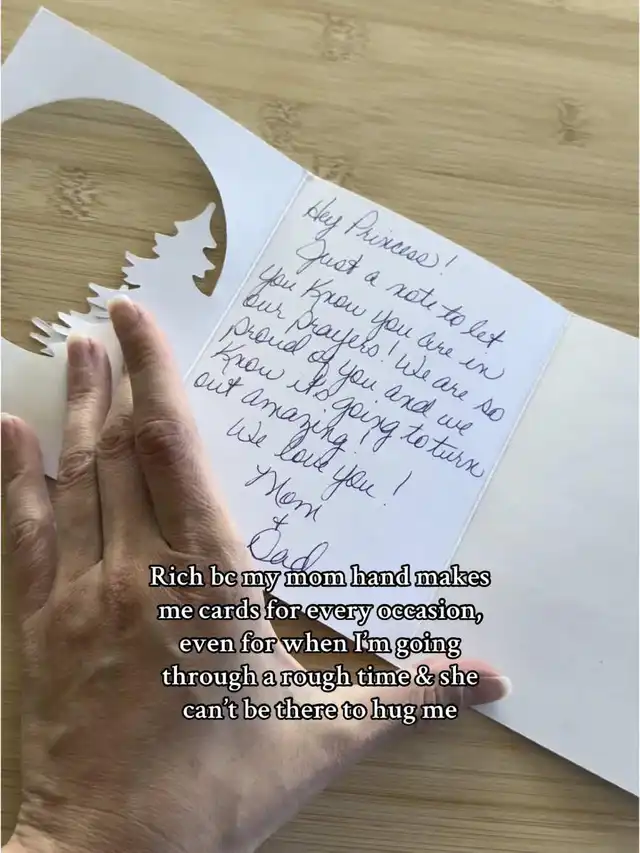 Hey Princess!
Just a note to let
you know you are in
our prayers! We are so
proud of you and we
know it's going to turn
out amazing!
We love you!
Mom
+
Dad
Rich bc my mom hand makes
me cards for every occasion,
even for when I'm going
through a rough time & she
can't be there to hug me